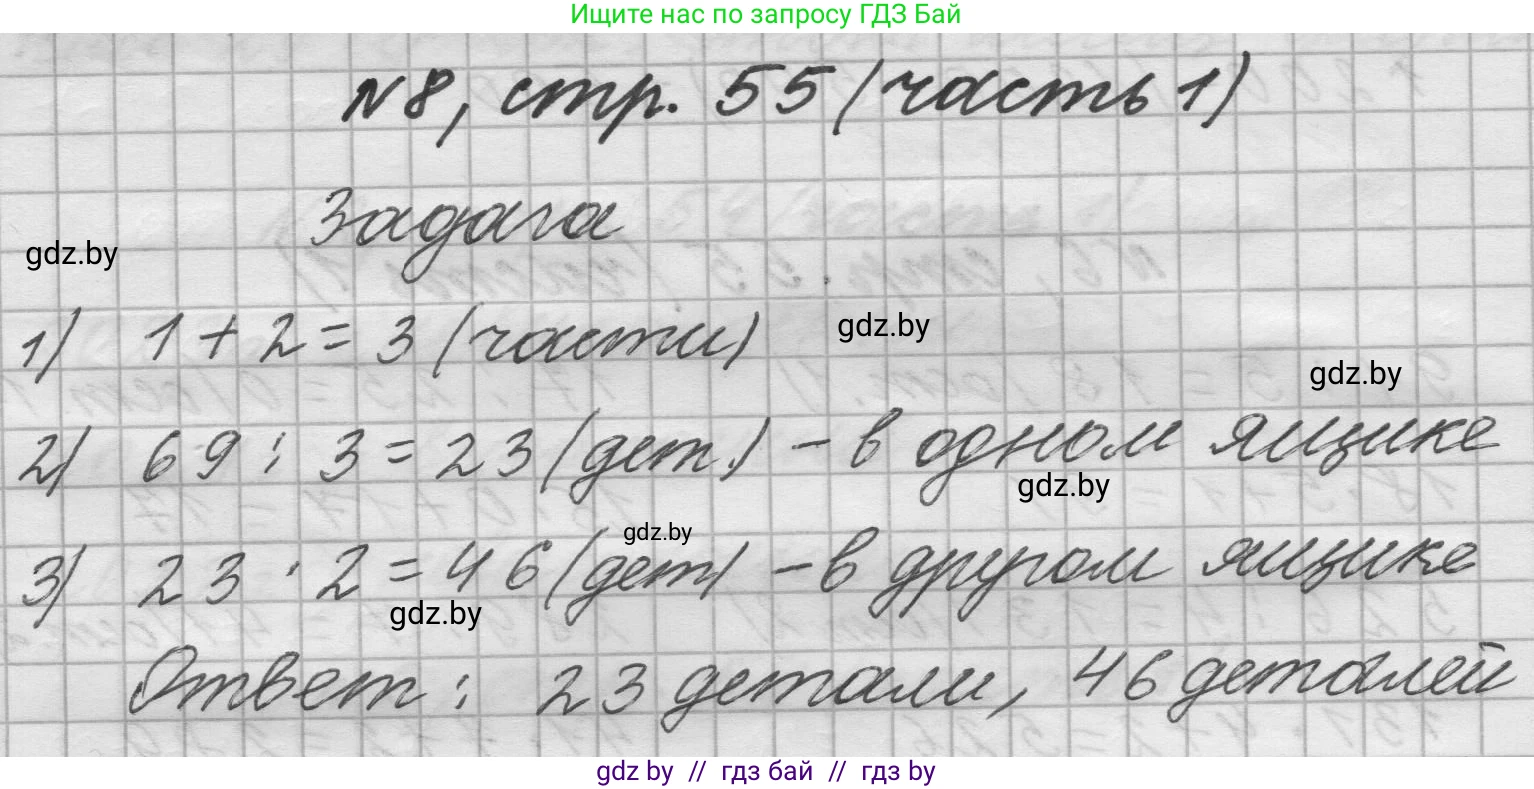 Ищите нас по запросу ГДЗ Бай
№8, стр. 55 (часть 1)
Задача
gdz.by
1) 1 + 2 = 3 (части)
gdz.by
gdz.by
2) 69 : 3 = 23 (дет.) - в одном ящике
gdz.by
gdz.by
3) 23 · 2 = 46 (дет) - в другом ящике
gdz.by
Ответ: 23 детали, 46 деталей
gdz by // гдз бай // гдз by